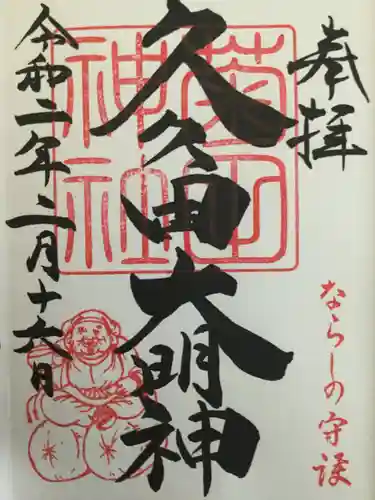 奉拝
ならしの守護
菊田
神社
久久田大明神
令和二年二月十六日